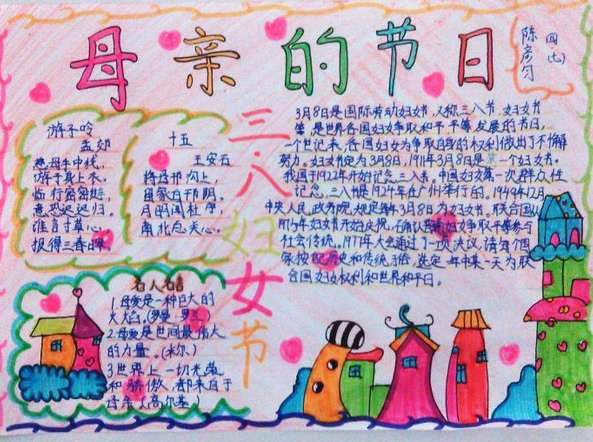 母亲的节日
陈彦匀
四(七)
三八妇女节
游子吟
孟郊
慈母手中线,
游子身上衣。
临行密密缝,
意恐迟迟归。
谁言寸草心,
报得三春晖
十五
王安石
将母邗沟上,
留家白邗阴。
月明闻杜宇,
南北总关心。
3月8日是国际劳动妇女节,又称三八节,妇女节
等,是世界各国妇女争取和平、平等、发展的节日,
一个世纪来,各国妇女为争取自身的权利做出了不懈
努力。妇女节定为3月8日,1911年3月8日是第一个妇女节。
我国于1922年开始记念三八。中国妇女第一次群众性
记念三八棋是1924年在广州举行的。1949年12月
中央人民政务院规定每年3月8日为妇女节。联合国从
1975年妇女节开始庆祝,
社会传统。1977年大会通过了一项决议,请每个国
家按照历史和传统习俗,选定一年中某一天为联
合国妇女权利和世界和平日。
名人名言
1.母爱是一种巨大的
火焰。(罗曼·罗兰)
2.母爱是世间最伟大
的力量。(米尔)
3世界上一切光荣
和骄傲,都来自于
母亲。(高尔基)